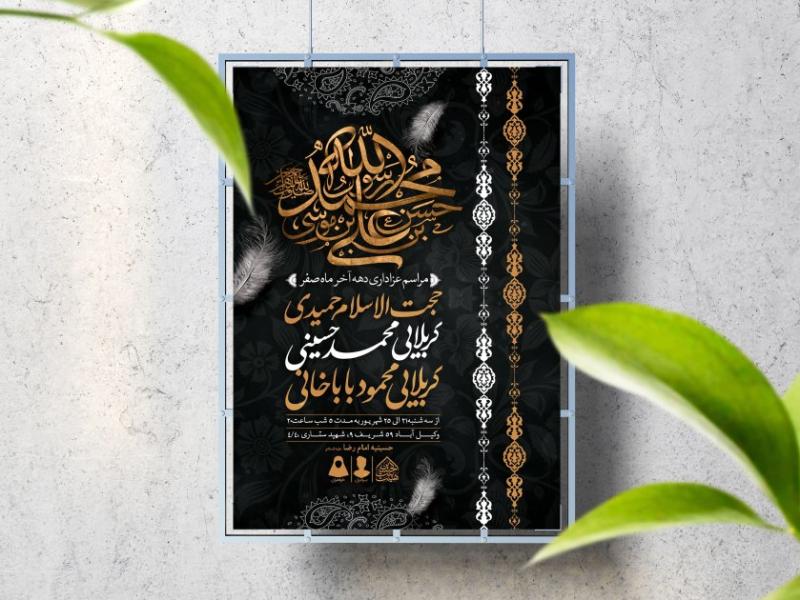 محمد رسول الله
حسن بن علی بن موسی
مراسم عزاداری دهه آخر ماه صفر
حجت الاسلام حمیدی
کربلایی محمد حسینی
کربلایی محمود باباخانی
از سه شنبه ۲۱ الی ۲۵ شهریور به مدت ۵ شب ساعت ۲۰
وکیل آباد ۵۹ شریف ۹، شهید ستاری ۴/۴۰
حسینیه امام رضا